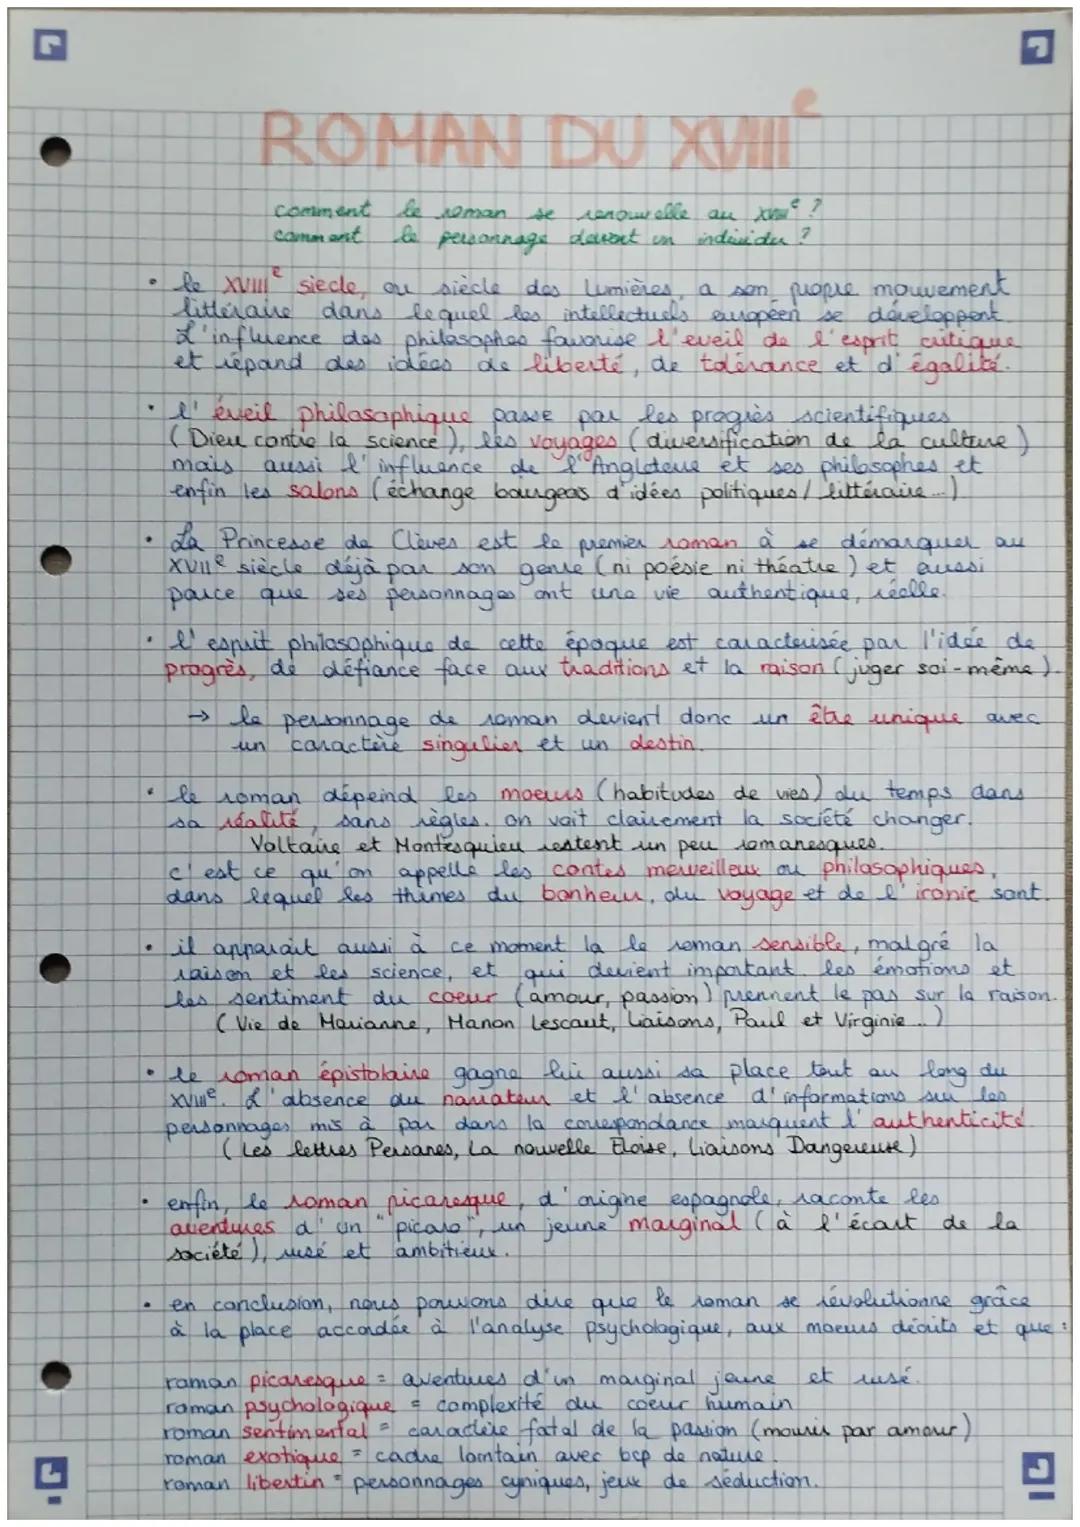 ROMAN DU XVIIIe
comment le roman se renouvelle au XVIIIe ?
comment le personnage devient un individu ?
• le XVIIIe siecle, ou siècle des lumières, a son propre mouvement
littéraire dans lequel les intellectuels européen se développent.
L'influence des philosophes favorise l'eveil de l'esprit critique
et répand des idées de liberté, de tolérance et d'égalité.
• l'éveil philosophique passe par les progrès scientifiques
(Dieu contre la science), les voyages (diversification de la culture)
mais aussi l'influence de l'Angleterre et ses philosophes et
enfin les salons (échange bourgeois d'idées politiques / littéraire...)
• La Princesse de Clèves est le premier roman à se démarquer au
XVIIe siècle déjà par son genre (ni poésie ni théatre) et aussi
parce que ses personnages ont une vie authentique, réelle.
• l'esprit philosophique de cette époque est caracterisée par l'idée de
progrès, de défiance face aux traditions et la raison (juger soi-même).
→ le personnage de roman devient donc un être unique avec
un caractère singulier et un destin.
• le roman dépeind les moeurs (habitudes de vies) du temps dans
sa réalité, sans règles. on voit clairement la société changer.
Voltaire et Montesquieu restent un peu romanesques.
c'est ce qu'on appelle les contes merveilleux ou philosophiques,
dans lequel les thèmes du bonheur, du voyage et de l'ironie sont.
• il apparait aussi à ce moment la le roman sensible, malgré la
raison et les science, et qui devient important. les émotions et
les sentiment du coeur (amour, passion) prennent le pas sur la raison.
(Vie de Marianne, Manon Lescaut, Liaisons, Paul et Virginie...)
• le roman épistolaire gagne lui aussi sa place tout au long du
XVIIIe. L'absence du narrateur et l'absence d'informations sur les
personnages mis à par dans la correspondance marquent l'authenticité
(Les lettres Persanes, La nouvelle Eloïse, Liaisons Dangereuse)
• enfin, le roman picaresque, d'origine espagnole, raconte les
aventures d'un "picaro", un jeune marginal (à l'écart de la
société), rusé et ambitieux.
• en conclusion, nous pouvons dire que le roman se révolutionne grâce
à la place accordée à l'analyse psychologique, aux moeurs décrits et que :
roman picaresque = aventures d'un marginal jeune et rusé.
roman psychologique = complexité du coeur humain
roman sentimental = caractère fatal de la passion (mourir par amour)
roman exotique = cadre lointain avec bcp de nature.
roman libertin = personnages cyniques, jeux de séduction.